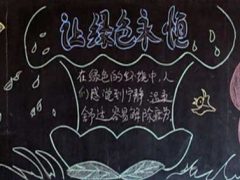 让绿色永恒
在绿色的环境中,人
们感觉到宁静,温柔
舒适,容易解除疲劳